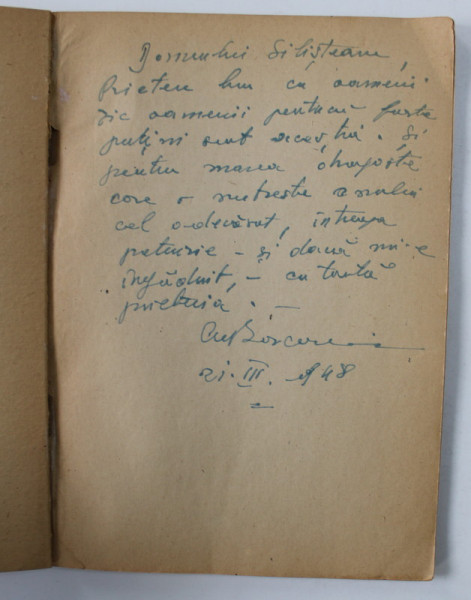 Domnului Silișteanu,
Prieten bun cu oamenii
zic oamenii pentrucă foarte
puțini sunt aceștia. Și
pentru marea dragoste
care o nutrește omului
cel adevărat, întreaga
prețuire – și dacă mi-e
îngăduit, – cu toată
prietenia. –
21. III. 1948